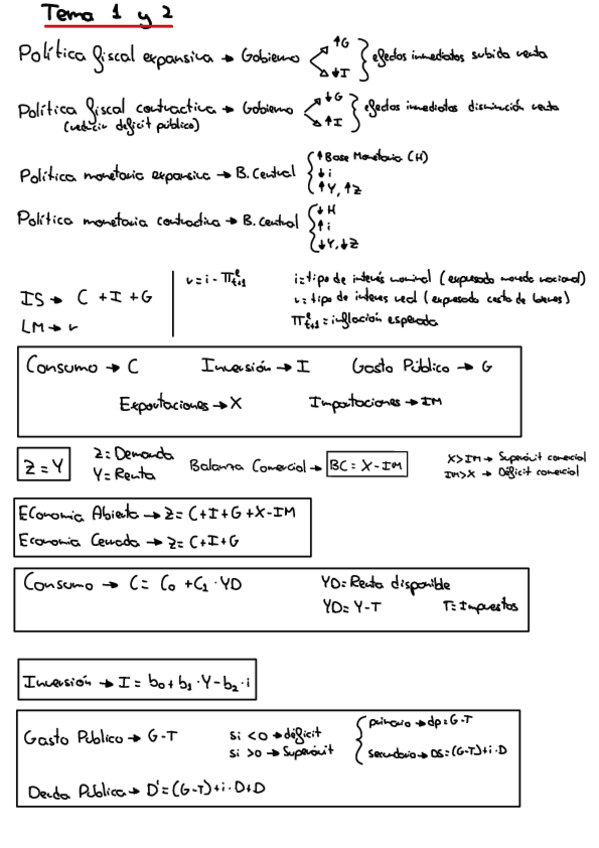 Tema 1 y 2
Política fiscal expansiva → Gobierno ↑G ↓I efectos inmediatos subida renta
Política fiscal contractiva → Gobierno ↓G ↑I efectos inmediatos disminución renta
(reducir déficit público)
Política monetaria expansiva → B. Central ↑Base Monetaria (H) ↓i ↑Y, ↑Z
Política monetaria contractiva → B. Central ↓H ↑i ↓Y, ↓Z
IS → C + I + G
LM → r
r = i - π^e_{t+1}
i = tipo de interés nominal (expresado moneda nacional)
r = tipo de interes real (expresado cesta de bienes)
π^e_{t+1} = inflación esperada
Consumo → C Inversión → I Gasto Público → G
Exportaciones → X Importaciones → IM
Z = Y
Z = Demanda
Y = Renta
Balanza Comercial → BC = X - IM
X > IM → Superávit comercial
IM > X → Déficit comercial
Economía Abierta → Z = C + I + G + X - IM
Economía Cerrada → Z = C + I + G
Consumo → C = C₀ + C₁ · YD
YD = Renta disponible
YD = Y - T T = Impuestos
Inversión → I = b₀ + b₁ · Y - b₂ · i
Gasto Público → G - T
si < 0 → déficit
si > 0 → Superávit
primario → dp = G - T
secundario → DS = (G - T) + i · D
Deuda Pública → D' = (G - T) + i · D + D